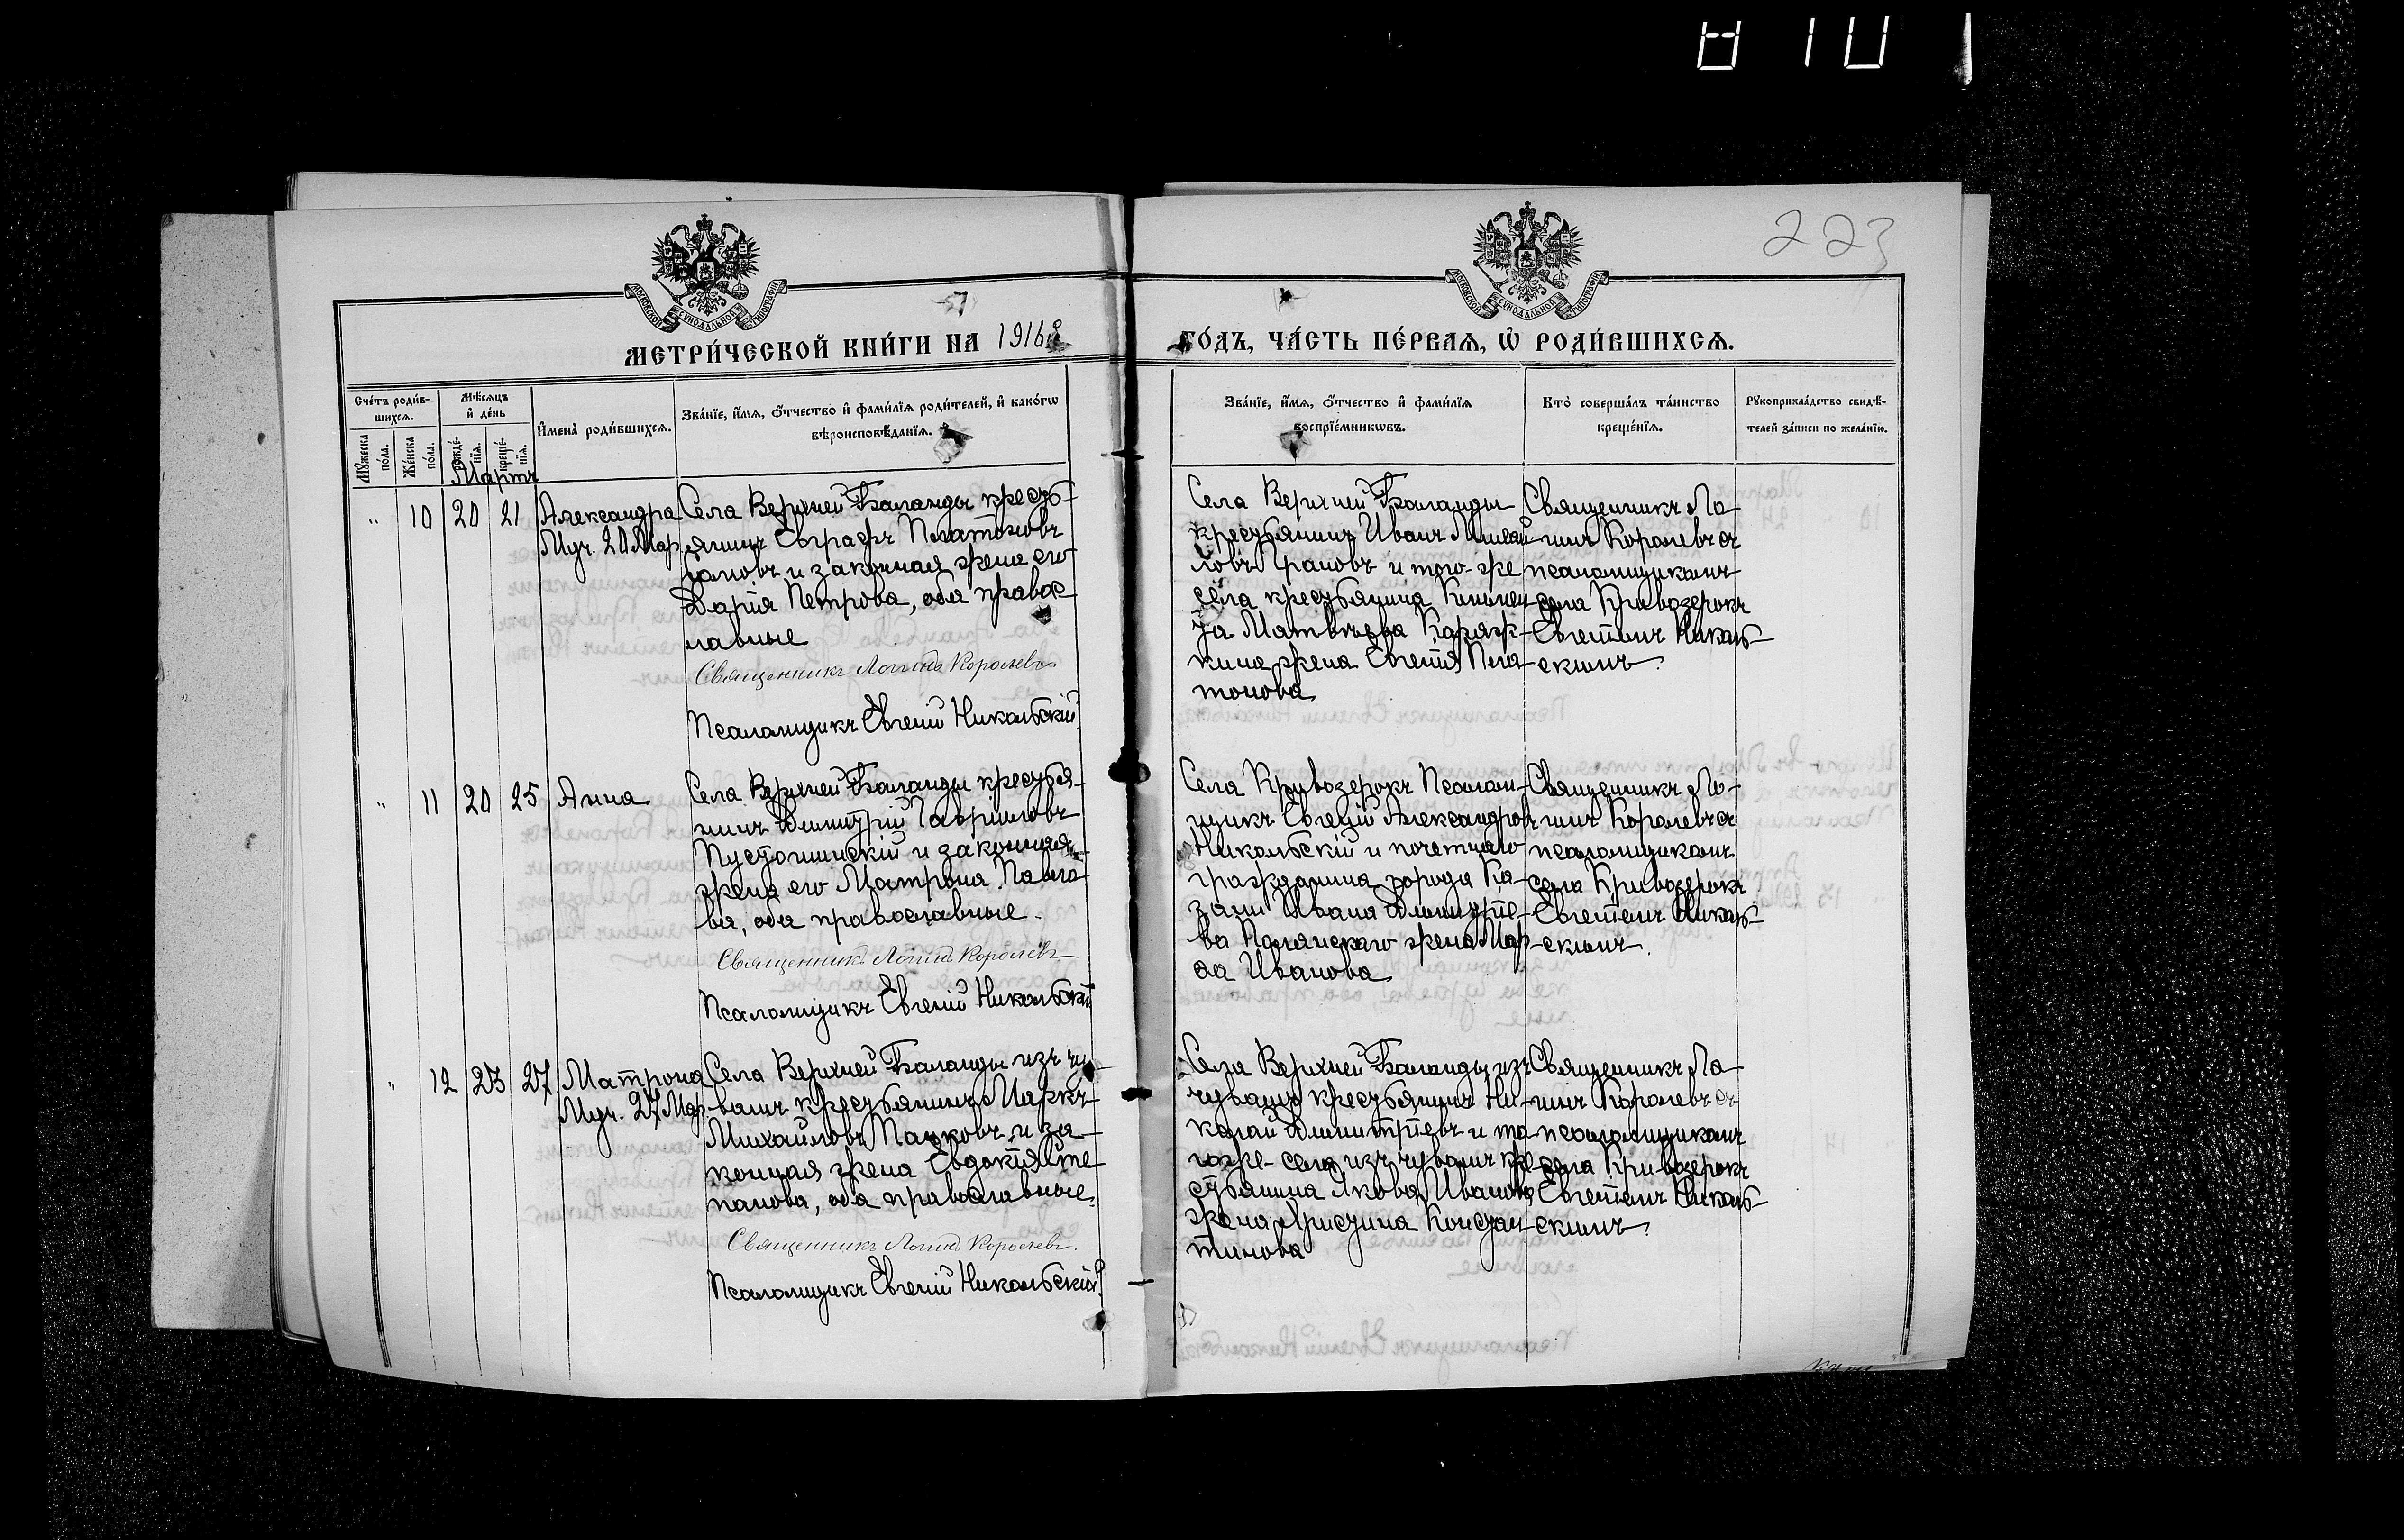 223
МОСКОВСКОЙ СѴНОДАЛЬНОЙ ТИПОГРАФІИ
МОСКОВСКОЙ СѴНОДАЛЬНОЙ ТИПОГРАФІИ
МЕТРИ́ЧЕСКОЙ КНИ́ГИ НА 1916й
ГО́ДЪ, ЧА́СТЬ ПЕ́РВАѦ, Ѡ҆ РОДИ́ВШИХСѦ.
Сче́тъ роди́в-
шихсѧ.
Мꙋ́жеска по́ла.
Же́нска по́ла.
Мѣ́сѧцъ
и҆ де́нь
рожде́-нїѧ.
креще́-нїѧ.
И҆мена̀ роди́вшихсѧ.
Зва́нїе, и҆́мѧ, ѻ҆́тчество и҆ фами́лїѧ роди́телей, и҆ како́гѡ
вѣроисповѣ́данїѧ.
Зва́нїе, и҆́мѧ, ѻ҆́тчество и҆ фами́лїѧ
воспрїе́мникѡвъ.
Кто̀ соверша́лъ та́инство
креще́нїѧ.
Рꙋкоприкла́дство свидѣ́-
телей за́писи по жела́нїю.
Мартъ
" 10 20 21
Александра
Муч. 20 Мар.
Села Верхней Баланды кресть-
янинъ Евграфъ Платоновъ
и законная жена его
Дарія Петрова, оба правос-
лавные
Священникъ Логинъ Королевъ
Псаломщикъ Евгеній Никольскій
Села Верхней Баланды
крестьянинъ Иванъ
и того-же
села крестьянина
Матвѣева
жена Евгенія Пла-
тонова
Священникъ Ло-
гинъ Королевъ съ
псаломщикомъ
села Кривозерокъ
Евгеніемъ Николь-
скимъ.
" 11 20 25
Анна
Села Верхней Баланды крестья-
нинъ Димитрій Гавриловъ
Пустошинскій и законная
жена его Матрона Павло-
ва, оба православные.
Священникъ Логинъ Королевъ
Псаломщикъ Евгеній Никольскій
Села Кривозерокъ Псалом-
щикъ Евгеній Александров
Никольскій и почетнаго
гражданина города Ка-
зани Ивана Димитріе-
ва Полянскаго жена Мар-
ѳа Иванова
Священникъ Ло-
гинъ Королевъ съ
псаломщикомъ
села Кривозерокъ
Евгеніемъ Николь-
скимъ.
" 12 23 27
Матрона
Муч. 27 Мар.
Села Верхней Баланды изъ чу-
вашъ крестьянинъ Маркъ
Михайловъ Пачковъ и за-
конная жена Евдокія Сте-
панова, оба православные.
Священникъ Логинъ Королевъ.
Псаломщикъ Евгеній Никольскій
Села Верхней Баланды изъ
чувашъ крестьянинъ Ни-
колай Димитріевъ и то-
гоже села изъ чувашъ кре-
стьянина Якова Иванова
жена Христина Констан-
тинова
Священникъ Ло-
гинъ Королевъ съ
псаломщикомъ
села Кривозерокъ
Евгеніемъ Николь-
скимъ.